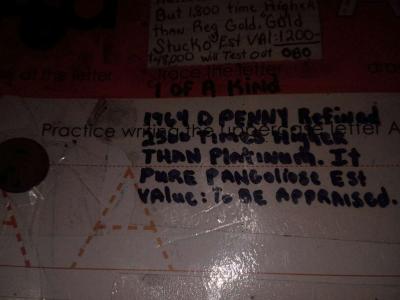 But 1800 time Higher
than Reg Gold. Gold
Stucko Est VAl:1200-
$48,000 will Test out OBO
at the letter
trace the letter
1 OF A Kind
1964 D PENNY Refined
2500 TIMES Higher
THAN Platinum. It
PURE PANGOLIOSE Est
VALUE: To BE APPRAISED.
Practice writing the uppercase letter A